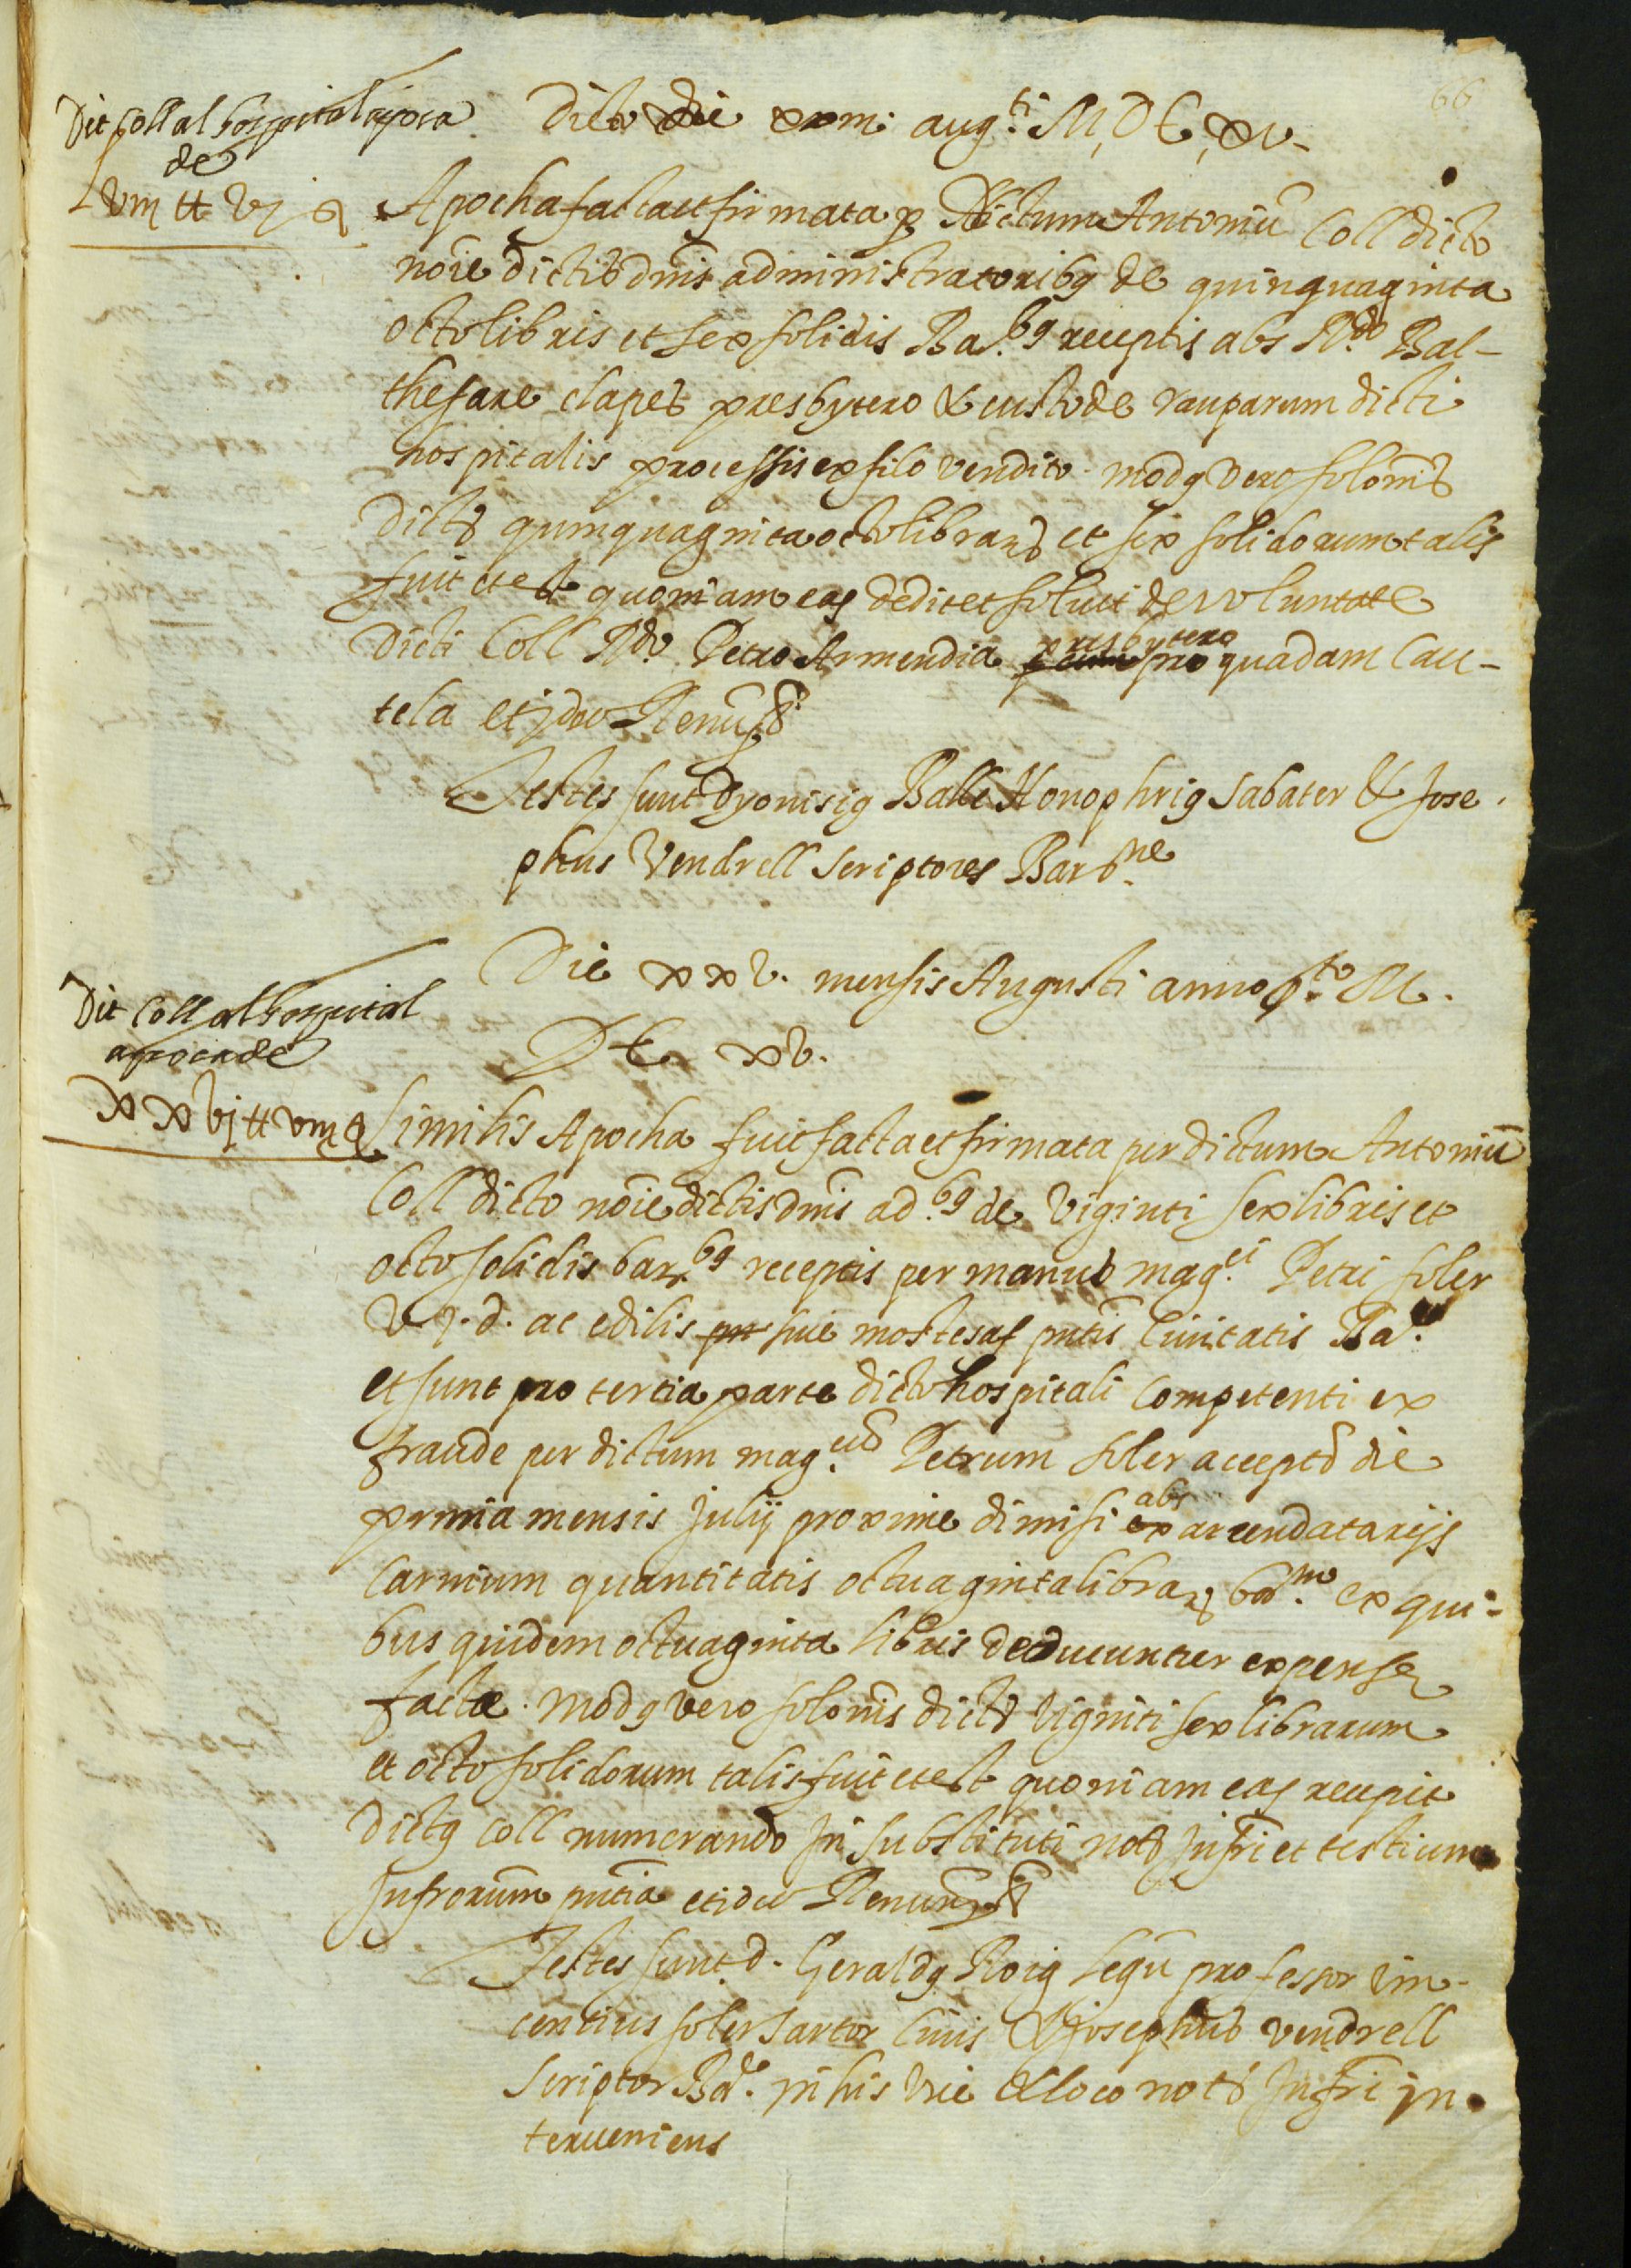 66
Dit Coll al hospital apoca
de
Lviij tt vj s
Dicto die xxiii aug.ti M, DC, xv.
Apocha facta et firmata p dictum Antoniū Coll dicto
noīe dictis dnīs administratoribq de quinquaginta
octo libris et sex solidis Ba.bq receptis abs R.do Bal-
thesare clapes presbytero & custode rauparum dicti
hospitalis processis ex filo vendito. modq vero soloniš
dictȝ quinquaginta octo librarȝ et sex solidorum talis
fuit et est quoniam eas dedit et soluit de voluntate
dicti Coll R.do Petro Armendia presbytero pro quadam Cau-
tela et ideo Renūȝ
Testes sunt dyonisiq Balle Honophriq Sabater & Jose-
phus Vendrell scriptores Bar.ne
Dit Coll al hospital
apoca de
xxvj tt viij s
Die xxv. mensis Augusti anno p.to M.
DC xv.
Similis Apocha fuit facta et firmata per dictum Antoniū
Coll dicto noīe dictis dnīs ad.bq de viginti sex libris et
octo solidis bar.bq receptis per manus mag.ci Petri soler
v. j. d. ac edilis siue mostesaf pntis Ciuitatis Ba.
et sunt pro tertia parte dicto hospitali Competenti ex
fraude per dictum mag.cū Petrum soler accepta die
prima mensis Julij proxime dimisi abs arrendatarijs
Carnium quantitatis octuaginta librarȝ ba.no ex qui-
bus quidem octuaginta libris deducuntur expensȩ
factæ. modq vero solonīs dictȝ viginti sex librarum
et octo solidorum talis fuit et est quoniam eas recepit
dictq Coll numerando In substituti notȝ Infrī et testium
Infrorum pntia et ideo Renunȝ
Testes sunt d. Geraldq Roig legū professor vin-
centius soler sartor Ciuis & Josephus vendrell
Scriptor Ba. in his vice & loco notȝ Infrī in-
terueniens